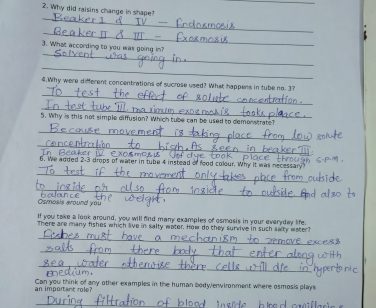 2. Why did raisins change in shape?
Beaker I & IV – Endosmosis
Beaker II & III – Exosmosis
3. What according to you was going in?
Solvent was going in.
4.Why were different concentrations of sucrose used? What happens in tube no. 3?
To test the effect of solute concentration.
In test tube III maximum exosmosis tooks place.
5. Why is this not simple diffusion? Which tube can be used to demonstrate?
Because movement is taking place from low solute
concentration to high. As seen in beaker III.
In Beaker IV exosmosis of dye took place through s.p.m.
6. We added 2-3 drops of water in tube 4 instead of food colour. Why it was necessary?
To test if the movement only takes place from outside
to inside or also from inside to outside and also to
balance the weight.
Osmosis around you
If you take a look around, you will find many examples of osmosis in your everyday life.
There are many fishes which live in salty water. How do they survive in such salty water?
Fishes must have a mechanism to remove excess
salts from there body that enter along with
sea water otherwise there cells will die in hypertonic
medium.
Can you think of any other examples in the human body/environment where osmosis plays
an important role?
During filtration of blood inside blood